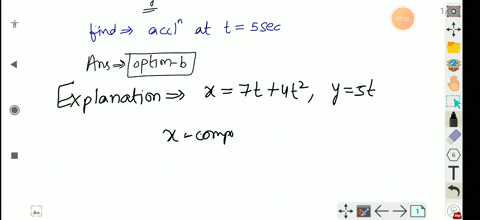 y
find ⇒ accl^n at t = 5sec
Ans ⇒ option-b
Explanation ⇒ x = 7t + 4t², y = 5t
x - compo